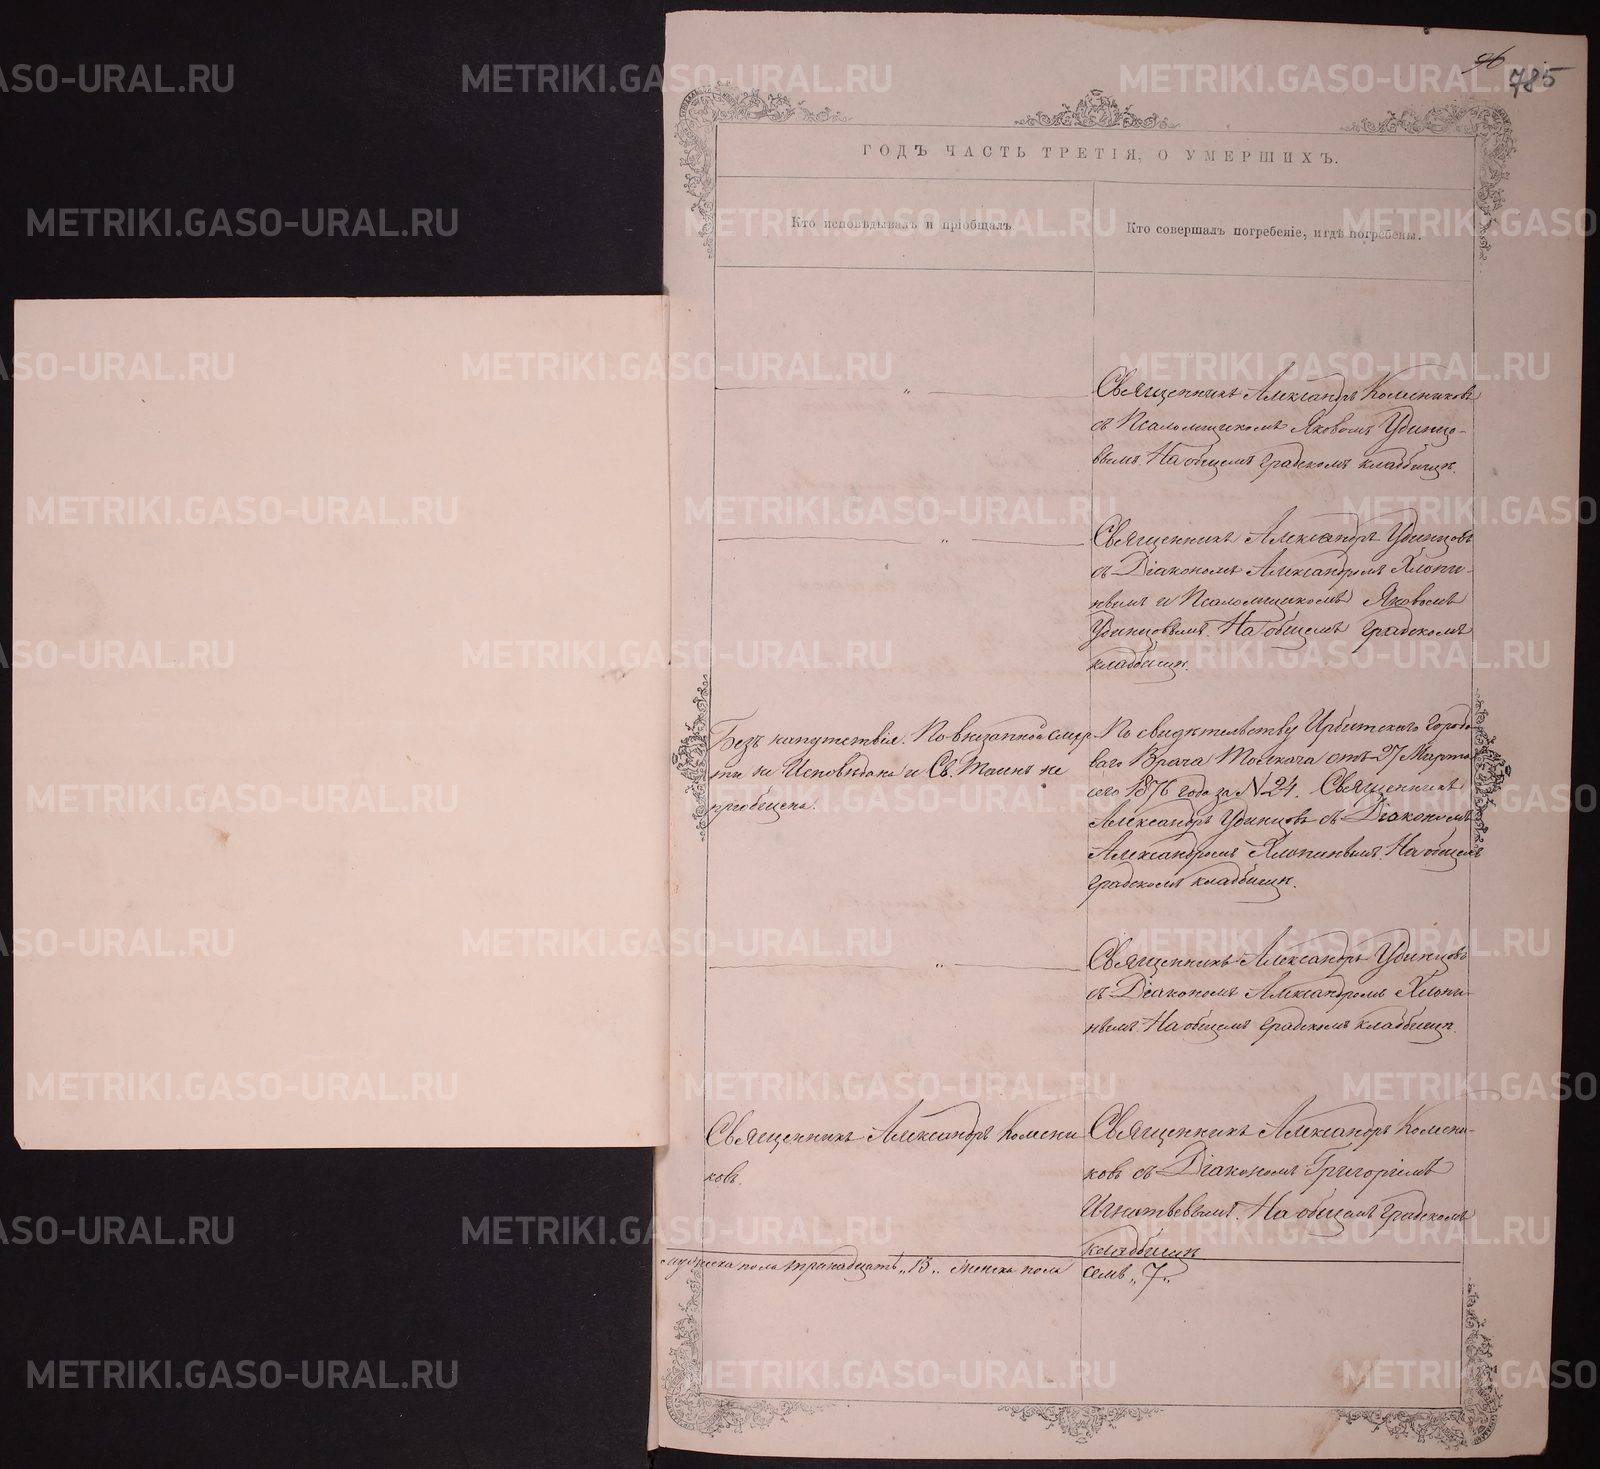 96
785
ГОДЪ ЧАСТЬ ТРЕТІЯ, О УМЕРШИХЪ.
Кто исповѣдывалъ и пріобщалъ.
Кто совершалъ погребеніе, и гдѣ погребены.
Священникъ Александръ Колесниковъ
съ Псаломщикомъ Яковомъ Удинцо-
вымъ. На общемъ градскомъ кладбищѣ.
Священникъ Александръ Удинцовъ
съ Діакономъ Александромъ Хлопи-
нымъ и Псаломщикомъ Яковомъ
Удинцовымъ. На общемъ градскомъ
кладбищѣ.
Безъ напутствія. По внезапной смер-
ти не Исповѣдана и Св. Таинъ не
пріобщена.
По свидѣтельству Ирбитскаго Городо
ваго Врача отъ 27 Марта
сего 1876 года за N 24. Священникъ
Александръ Удинцовъ съ Діакономъ
Александромъ Хлопинымъ. На общемъ
градскомъ кладбищѣ.
Священникъ Александръ Удинцовъ
съ Діакономъ Александромъ Хлопи-
нымъ. На общемъ градскомъ кладбищѣ.
Священникъ Александръ Колесни
ковъ.
Священникъ Александръ Колесни-
ковъ съ Діакономъ Григоріемъ
Игнатьевымъ. На общемъ градскомъ
кладбищѣ
мужеска пола тринадцать „13„ женска пола
семь „7„
METRIKI.GASO-URAL.RU